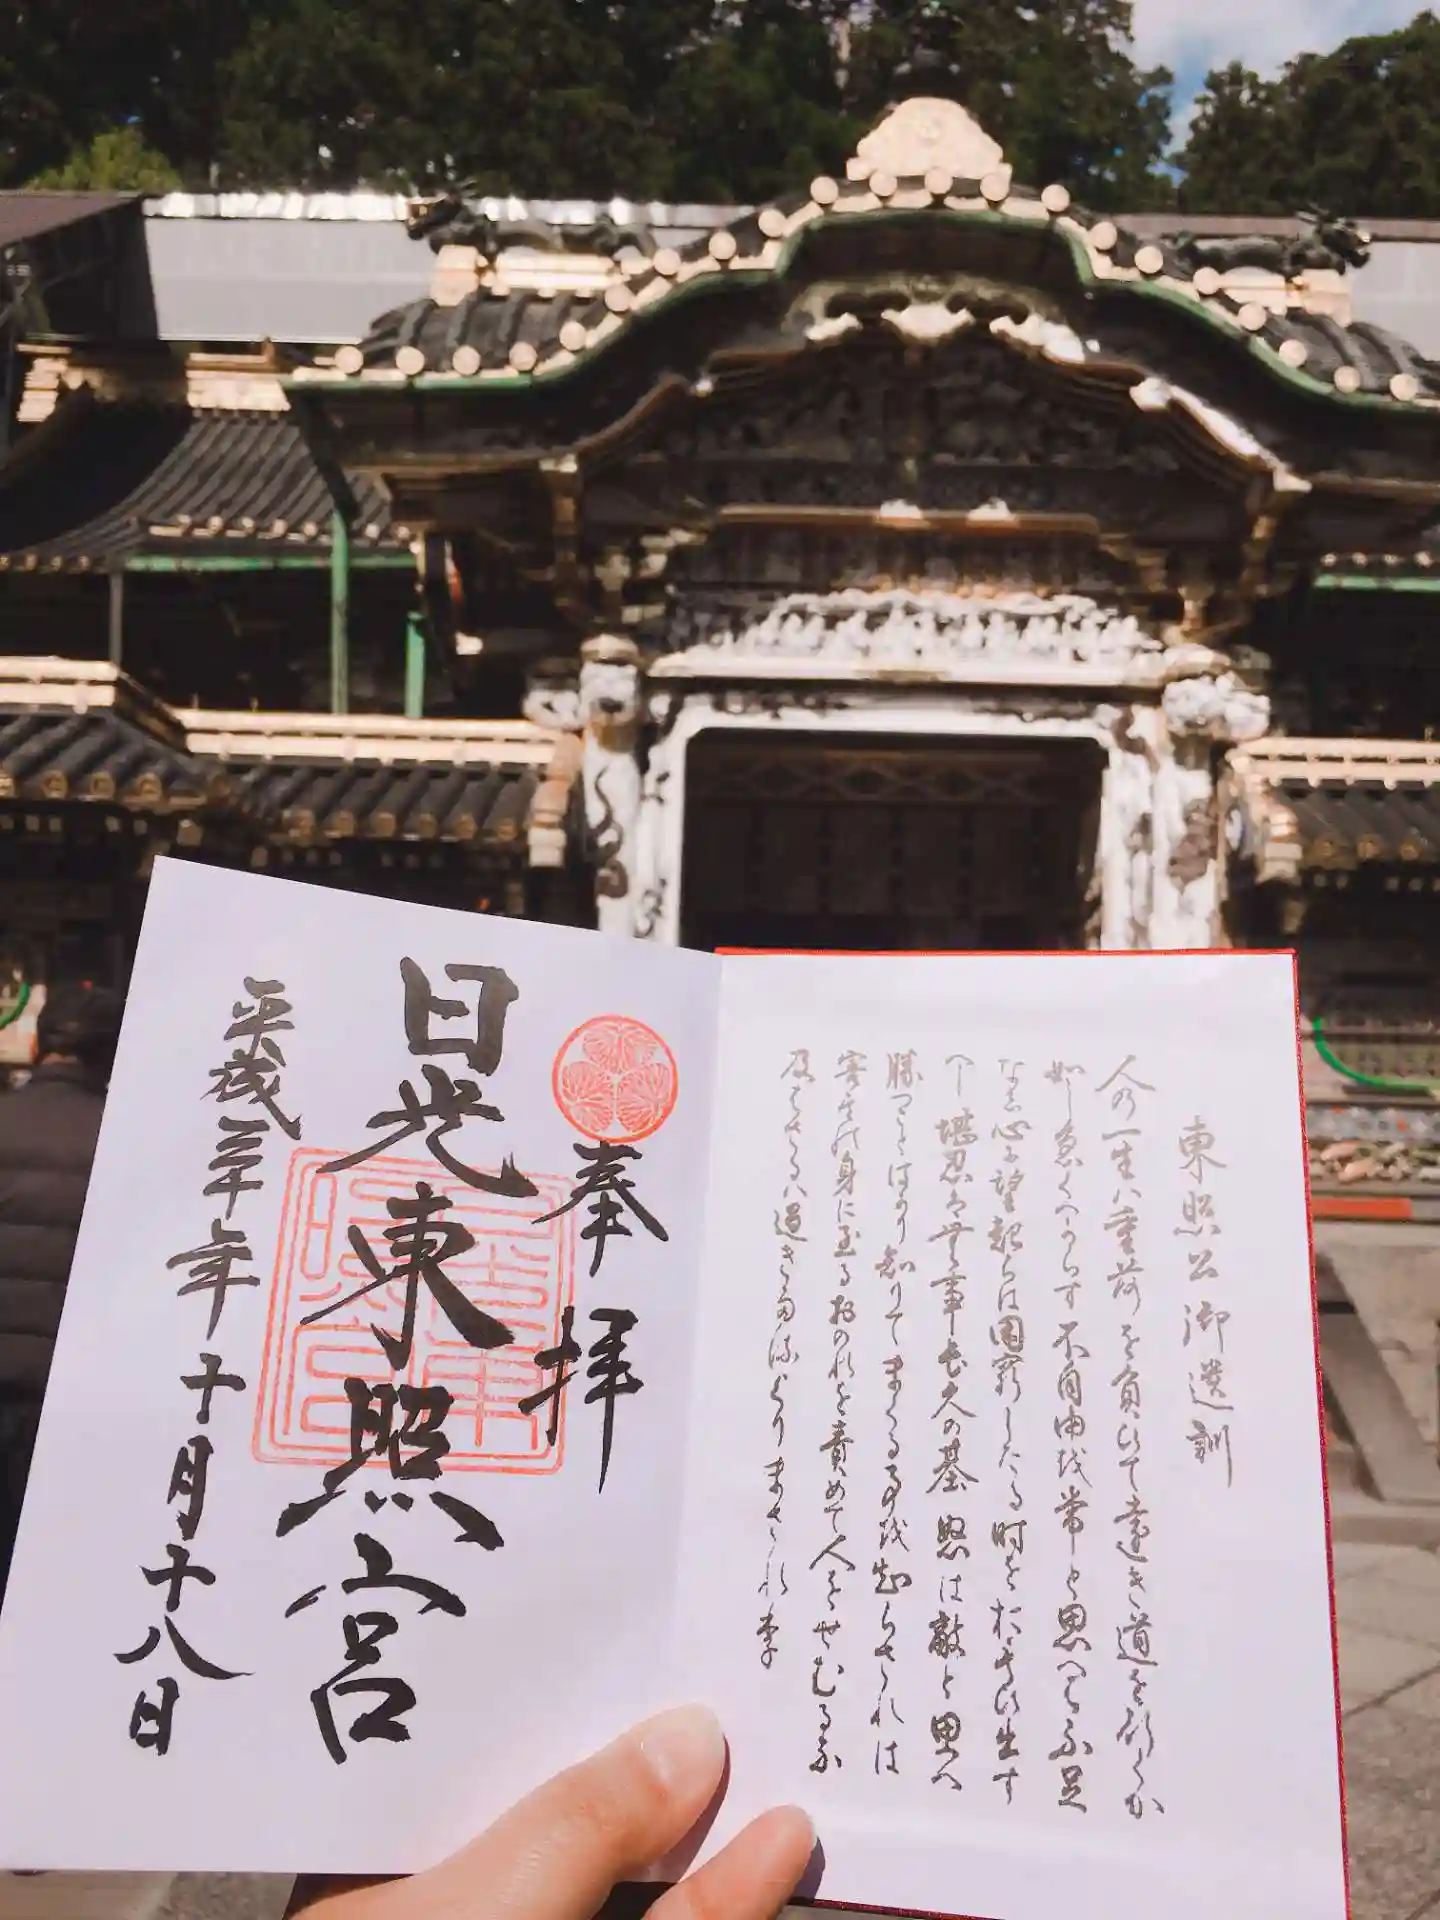 東照公御遺訓
人の一生は重荷を負ひて遠き道を行くか
如し急くへからす不自由を常と思へは不足
なし心に望起らは困窮したる時を思ひ出す
へし堪忍は無事長久の基 怒は敵と思へ
勝つことはかり知りてまくる事を知らされは
害其の身に至るおのれを責めて人をせむるな
及はさるは過きたるよりまされり
奉拝
日光東照宮
平成三十年十月十八日